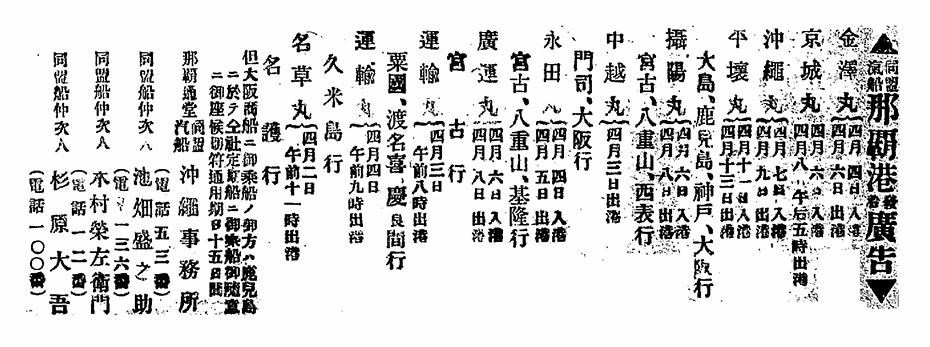 同盟汽船那覇港發着廣告
金澤丸 四月四日入港 四月六日出港
京城丸 四月六日入港 四月八日午后五時出港
沖繩丸 四月七日入港 四月九日出港
平壤丸 四月十一日入港 四月十三日出港
大島、鹿兒島、神戸、大阪行
攝陽丸 四月六日入港 四月八日出港
宮古、八重山、西表行
中越丸 四月三日出港
門司、大阪行
永田丸 四月四日入港 四月五日出港
宮古、八重山、基隆行
廣運丸 四月六日入港 四月八日出港
宮古行
運輸丸 四月三日 午前八時出港
粟國、渡名喜、慶良間行
運輸丸 四月四日 午前九時出港
久米島行
名草丸 四月二日 午前十一時出港
名護行
但大阪商船ニ御乘船ノ御方ハ鹿兒島
ニ於テ仝社定期船ニ御乘船御隨意
ニ御座候切符通用期日十五日間
那覇通堂 同盟汽船 沖繩事務所
(電話五三番)
同盟船仲次人 池畑盛之助
(電話一三六番)
同盟船仲次人 木村榮左衛門
(電話一二番)
同盟船仲次人 杉原大吾
(電話一〇〇番)